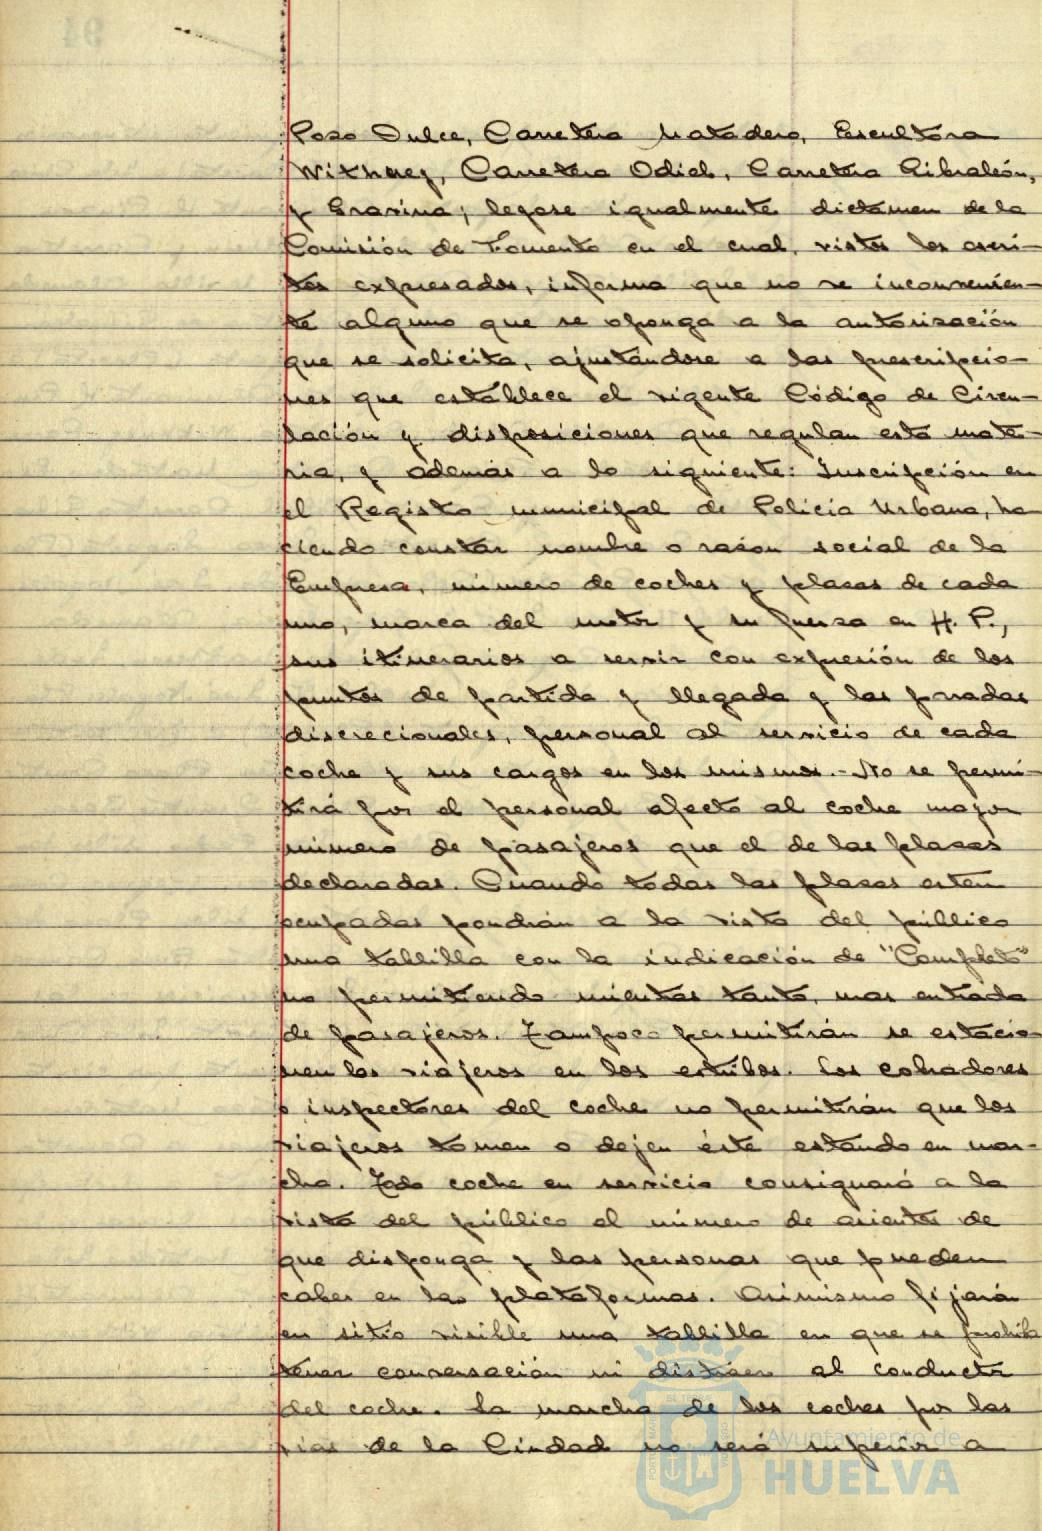 94
Poso Dulce, Carretera Matadero, Escultora
Withney, Carretera Odiel, Carretera Gibraleón,
y Gravina; legose igualmente dictamen de la
Comisión de Fomento en el cual, vistos los escri-
tos expresados, informa que no ve inconvenien-
te alguno que se oponga a la autorisación
que se solicita, ajustandose a las prescripcio-
nes que establece el vigente Código de Circu-
lación y disposiciones que regulan esta mate-
ria, y ademas a lo siguiente: Inscripción en
el Registro municipal de Policia Urbana, ha
ciendo constar nombre o rason social de la
Empresa, número de coches y plasas de cada
uno, marca del motor y su fuersa en H. P.,
sus itinerarios a servir con expresión de los
puntos de partida y llegada y las paradas
discrecionales, personal al servicio de cada
coche y sus cargos en los mismos.- No se permi-
tirá por el personal afecto al coche mayor
número de pasajeros que el de las plasas
declaradas. Cuando todas las plasas esten
ocupadas pondrán a la vista del público
una tablilla con la indicación de "Completo"
no permitiendo mientras tanto, mas entrada
de pasajeros. Tampoco permitirán se estacio
nen los viajeros en los estribos. Los cobradores
o inspectores del coche no permitirán que los
viajeros tomen o dejen éste estando en mar-
cha. Todo coche en servicio consignará a la
vista del público el número de asientos de
que disponga y las personas que pueden
caber en las plataformas. Asimismo fijarán
en sitio visible una tablilla en que se prohiba
tener conversación ni distraer al conductor
del coche. La marcha de los coches por las
vias de la Ciudad no será superior a
Ayuntamiento de
HUELVA